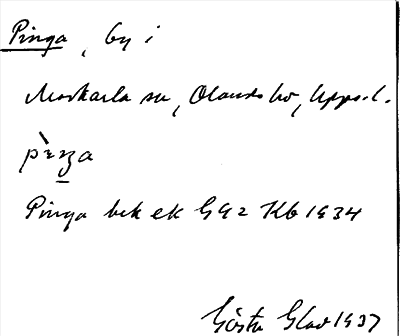 Pinga, by i
Morkarla sn, Olands hd, Upps. l.
pìŋa
Pinga bek ek G92 Kb 1934
Gösta Glav 1937